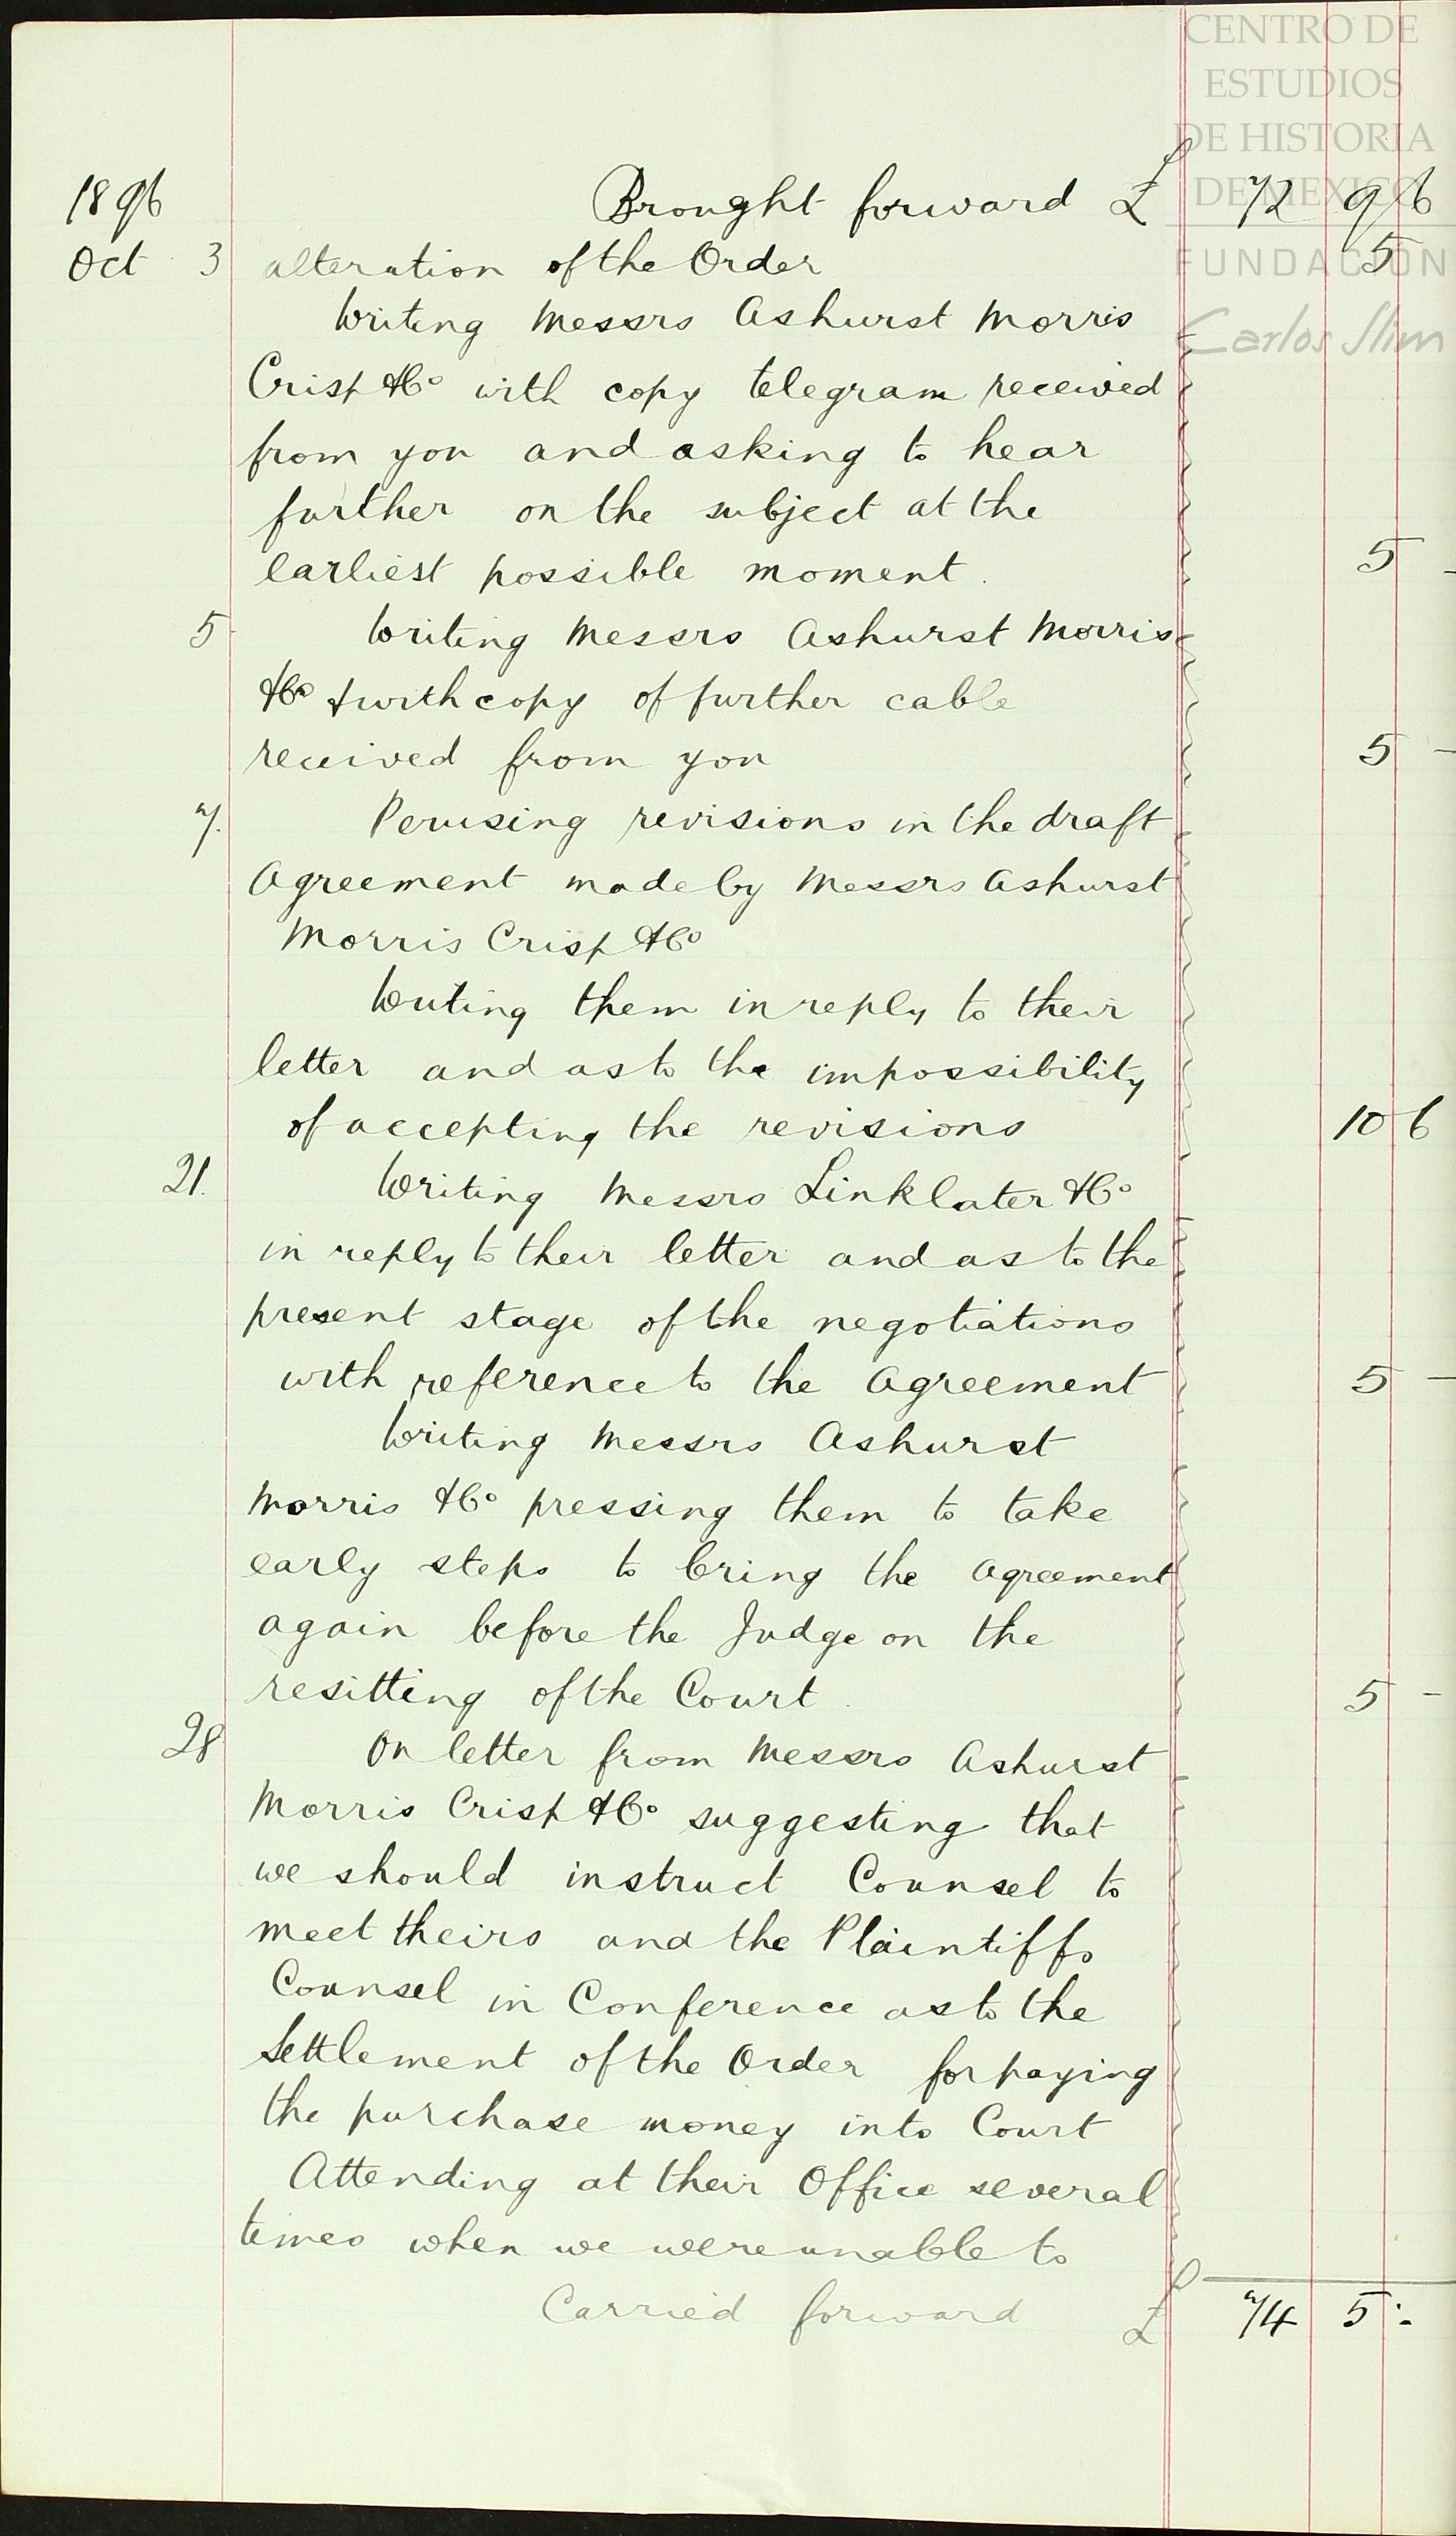 CENTRO DE
ESTUDIOS
DE HISTORIA
DE MEXICO
FUNDACIÓN
Carlos Slim
1896 Brought forward £ 72 9 6
Oct 3 alteration of the Order 5
Writing Messrs Ashurst Morris
Crisp & Co with copy telegram received
from you and asking to hear
further on the subject at the
earliest possible moment. 5 -
5 Writing Messrs Ashurst Morris
& Co with copy of further cable
received from you 5 -
7. Perusing revisions in the draft
Agreement made by Messrs Ashurst
Morris Crisp & Co
Writing them in reply to their
letter and as to the impossibility
of accepting the revisions 10 6
21. Writing Messrs Linklater & Co
in reply to their letter and as to the
present stage of the negotiations
with reference to the Agreement 5 -
Writing Messrs Ashurst
Morris & Co pressing them to take
early steps to bring the Agreement
again before the Judge on the
resitting of the Court. 5 -
28 On letter from Messrs Ashurst
Morris Crisp & Co suggesting that
we should instruct Counsel to
meet theirs and the Plaintiffs
Counsel in Conference as to the
Settlement of the Order for paying
the purchase money into Court
Attending at their Office several
times when we were unable to
Carried forward £ 74 5 -